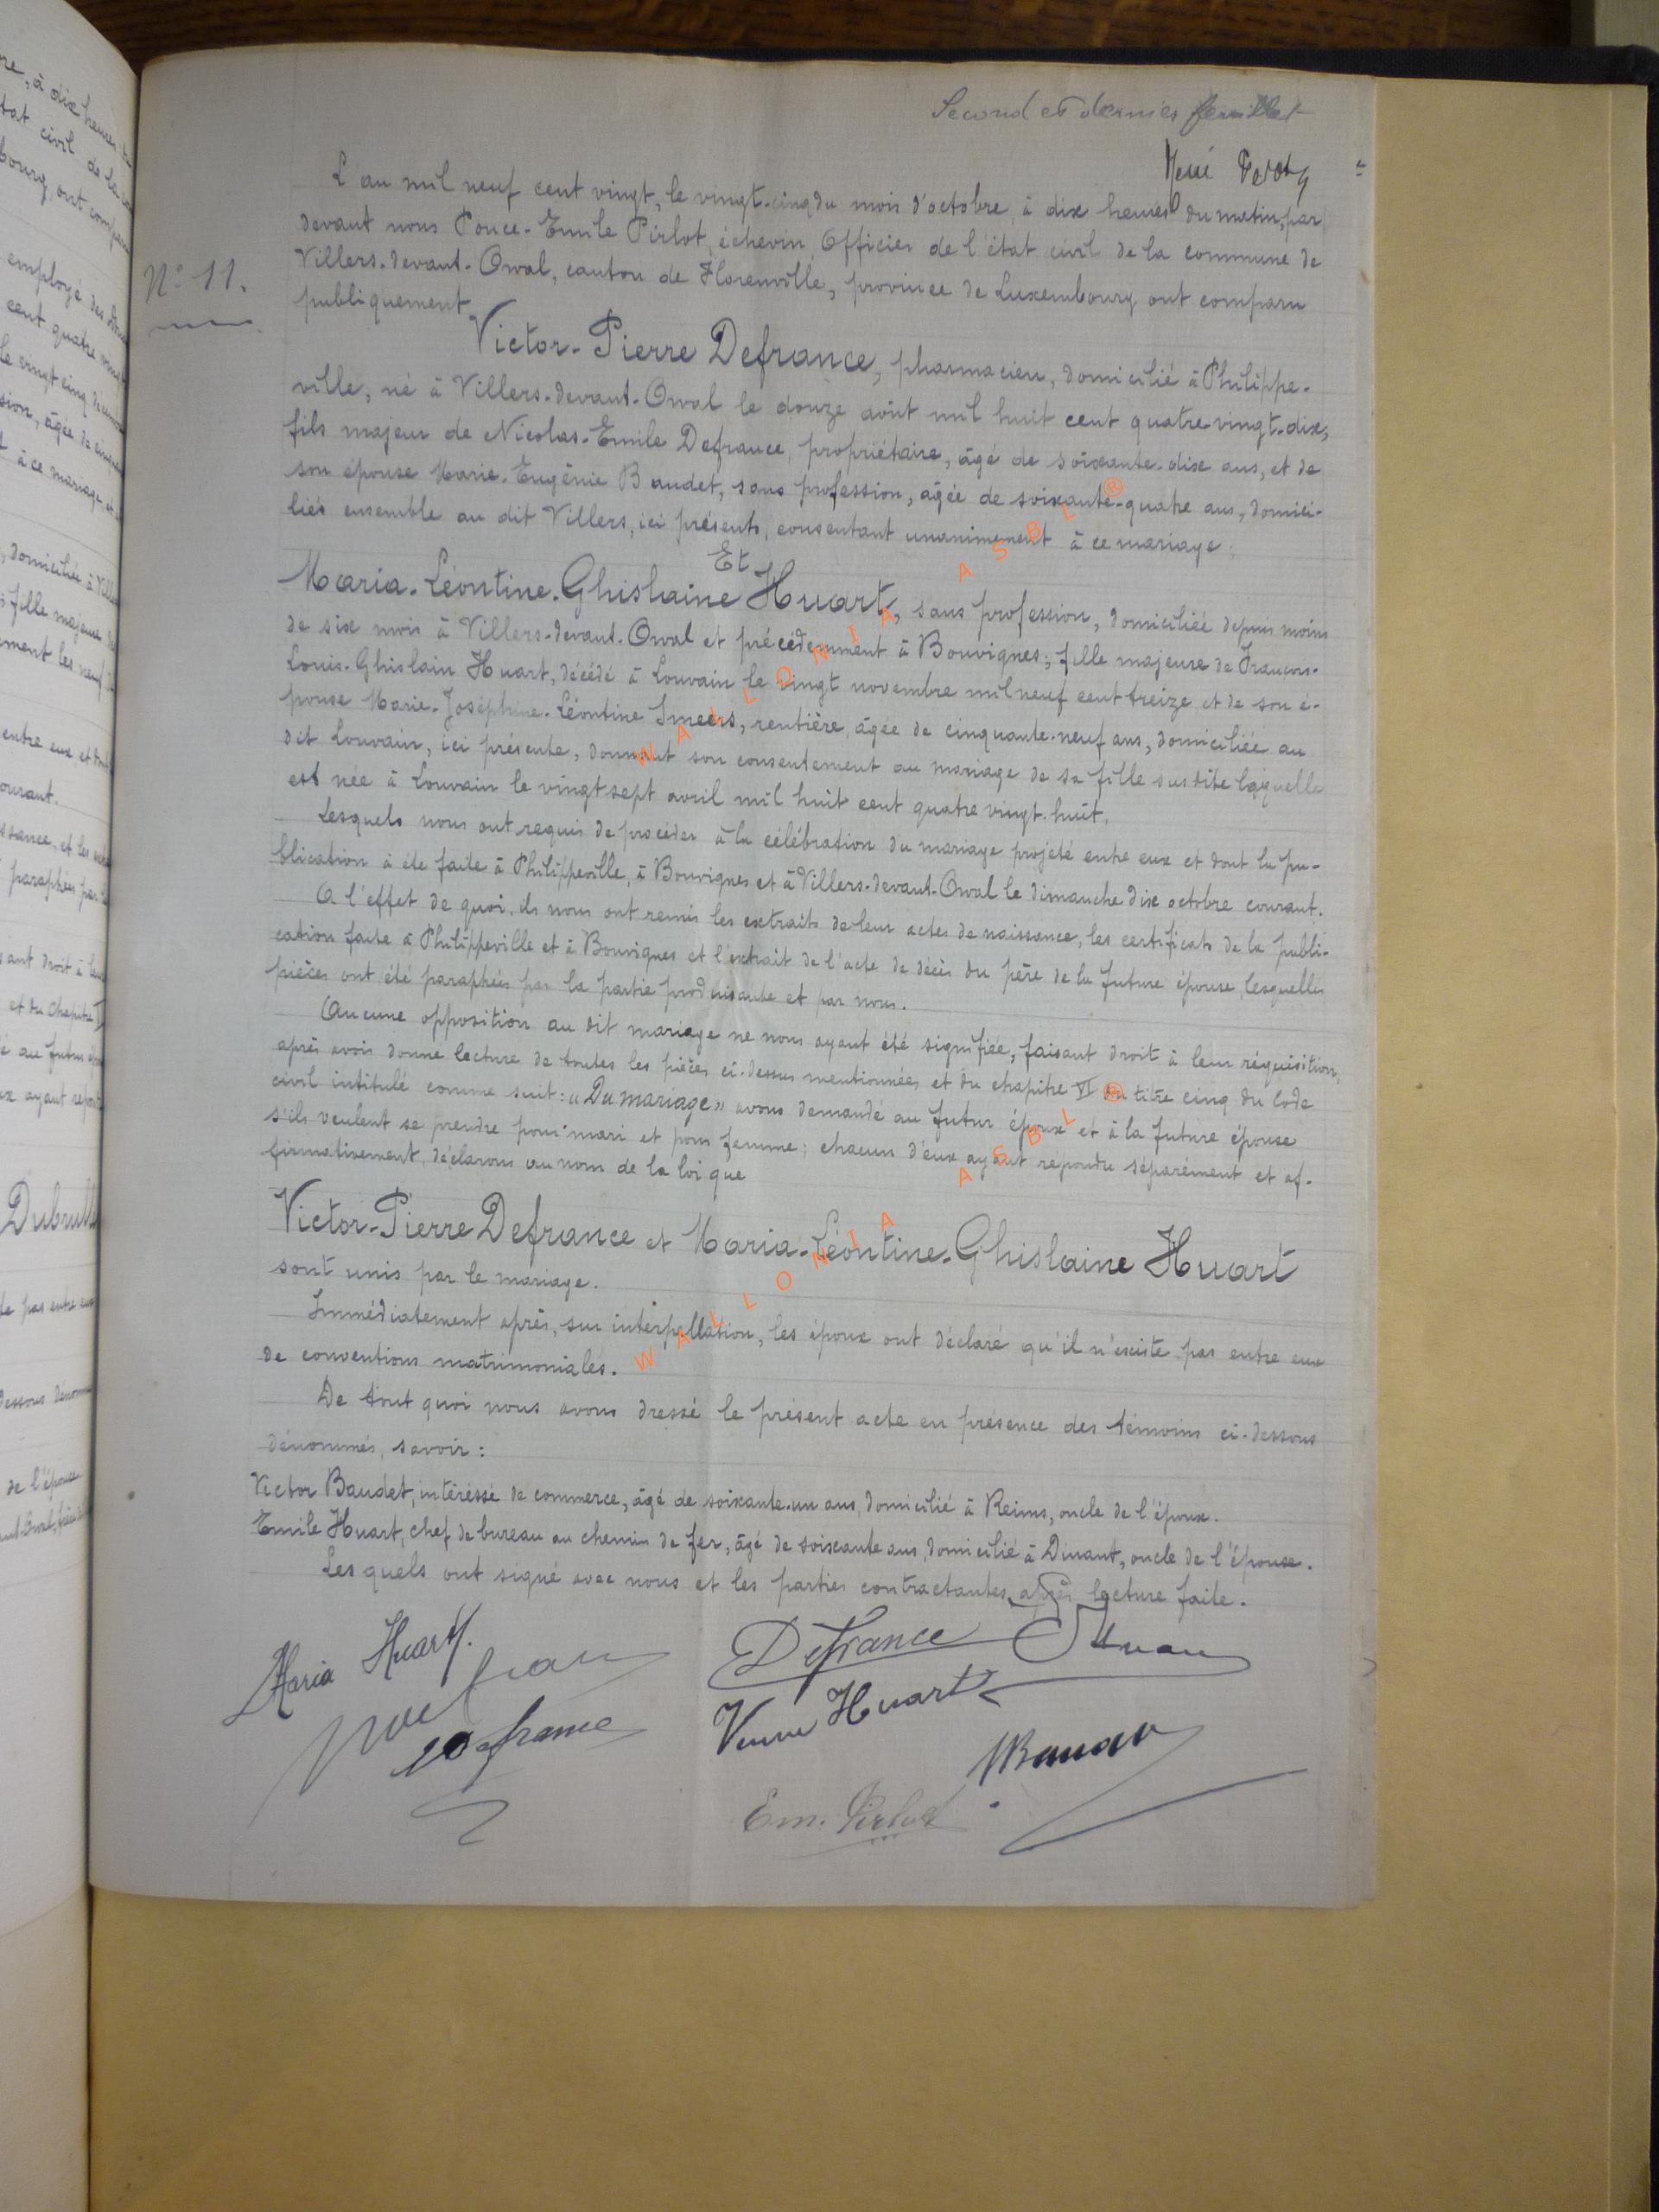 Second et dernier feuillet
L'an mil neuf cent vingt, le vingt-cinq du mois d'octobre, à dix heures du matin, par
devant nous Ponce-Emile Pirlot, échevin, Officier de l'état civil de la commune de
Villers-devant-Orval, canton de Florenville, province de Luxembourg ont comparu
publiquement
N° 11.
Victor-Pierre Defrance, pharmacien, domicilié à Philippe-
ville, né à Villers-devant-Orval le douze août mil huit cent quatre vingt-dix,
fils majeur de Nicolas-Emile Defrance, propriétaire, âgé de soixante-dix ans, et de
son épouse Marie-Eugénie Baudet, sans profession, âgée de soixante-quatre ans, domici-
liés ensemble au dit Villers, ici présents, consentant unanimement à ce mariage.
Et
Maria-Léontine-Ghislaine Huart, sans profession, domiciliée depuis moins
de six mois à Villers-devant-Orval et précédemment à Bouvignes; fille majeure de François-
Louis-Ghislain Huart, décédé à Louvain le vingt novembre mil neuf cent treize et de son é-
pouse Marie-Joséphine-Léontine Smeers, rentière, âgée de cinquante-neuf ans, domiciliée au
dit Louvain, ici présente, donnant son consentement au mariage de sa fille susdite laquelle
est née à Louvain le vingt sept avril mil huit cent quatre vingt-huit.
Lesquels nous ont requis de procéder à la célébration du mariage projeté entre eux et dont la pu-
blication à été faite à Philippeville, à Bouvignes et à Villers-devant-Orval le dimanche dix octobre courant.
A l'effet de quoi, ils nous ont remis les extraits de leur actes de naissance, les certificats de la publi-
cation faite à Philippeville et à Bouvignes et l'extrait de l'acte de décès du père de la future épouse, lesquelles
pièces ont été paraphées par la partie produisante et par nous.
Aucune opposition au dit mariage ne nous ayant été signifiée, faisant droit à leur réquisition,
après avoir donné lecture de toutes les pièces ci-dessus mentionnées et du chapitre VI du titre cinq du Code
civil intitulé comme suit: "Du mariage" avons demandé au futur époux et à la future épouse
s'ils veulent se prendre pour mari et pour femme; chacun d'eux ayant répondu séparément et af-
firmativement, déclarons au nom de la loi que
Victor-Pierre Defrance et Maria-Léontine-Ghislaine Huart
sont unis par le mariage.
Immédiatement après, sur interpellation, les époux ont déclaré qu'il n'existe pas entre eux
de conventions matrimoniales.
De tout quoi nous avons dressé le présent acte en présence des témoins ci-dessous
dénommés, savoir:
Victor Baudet, intéressé de commerce, âgé de soixante-un ans, domicilié à Reims, oncle de l'époux.
Emile Huart, chef de bureau au chemin de fer, âgé de soixante ans, domicilié à Dinant, oncle de l'épouse.
Lesquels ont signé avec nous et les parties contractantes, après lecture faite.
Maria Huart.
Defrance
Veuve Huart
Defrance
Em. Pirlot
WALLONIA ASBL ®
WALLONIA ASBL ®